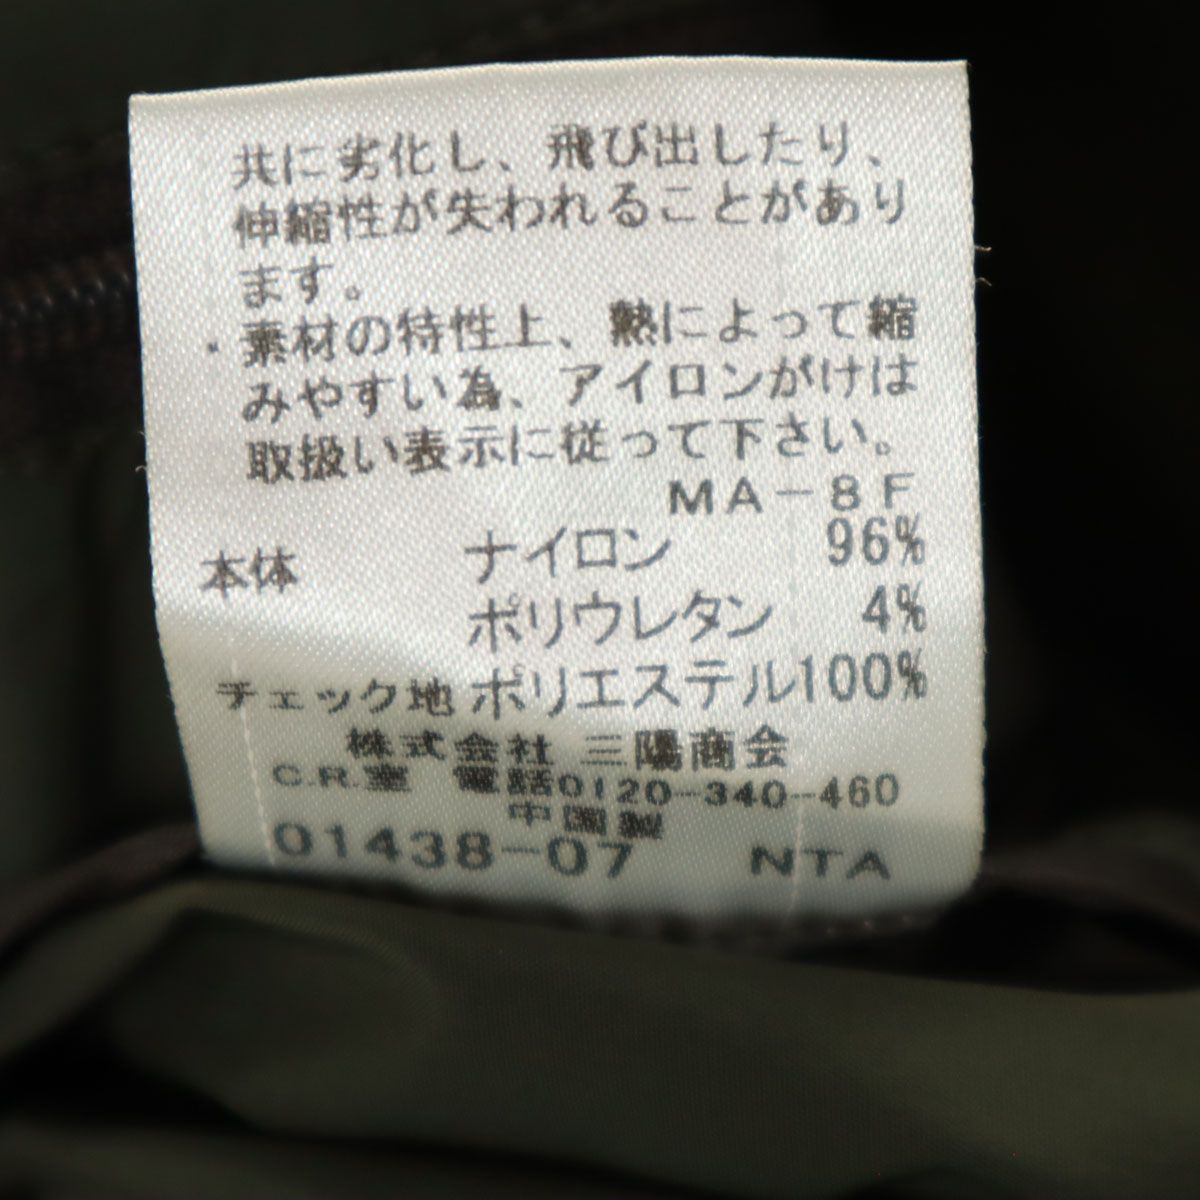 共に劣化し、飛び出したり、
伸縮性が失われることがあり
ます。
・素材の特性上、熱によって縮
みやすい為、アイロンがけは
取扱い表示に従って下さい。
MA-8F
本体 ナイロン 96%
ポリウレタン 4%
チェック地 ポリエステル100%
株式会社 三陽商会
C.R.室 電話0120-340-460
中国製
01438-07 NTA